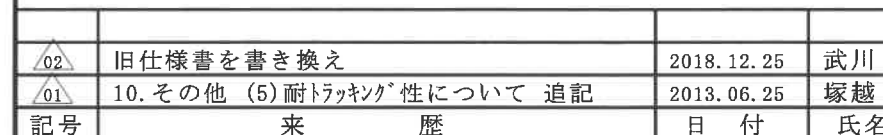 02 旧仕様書を書き換え 2018.12.25 武川
01 10.その他 (5)耐ﾄﾗｯｷﾝｸﾞ性について 追記 2013.06.25 塚越
記号 来 歴 日 付 氏名